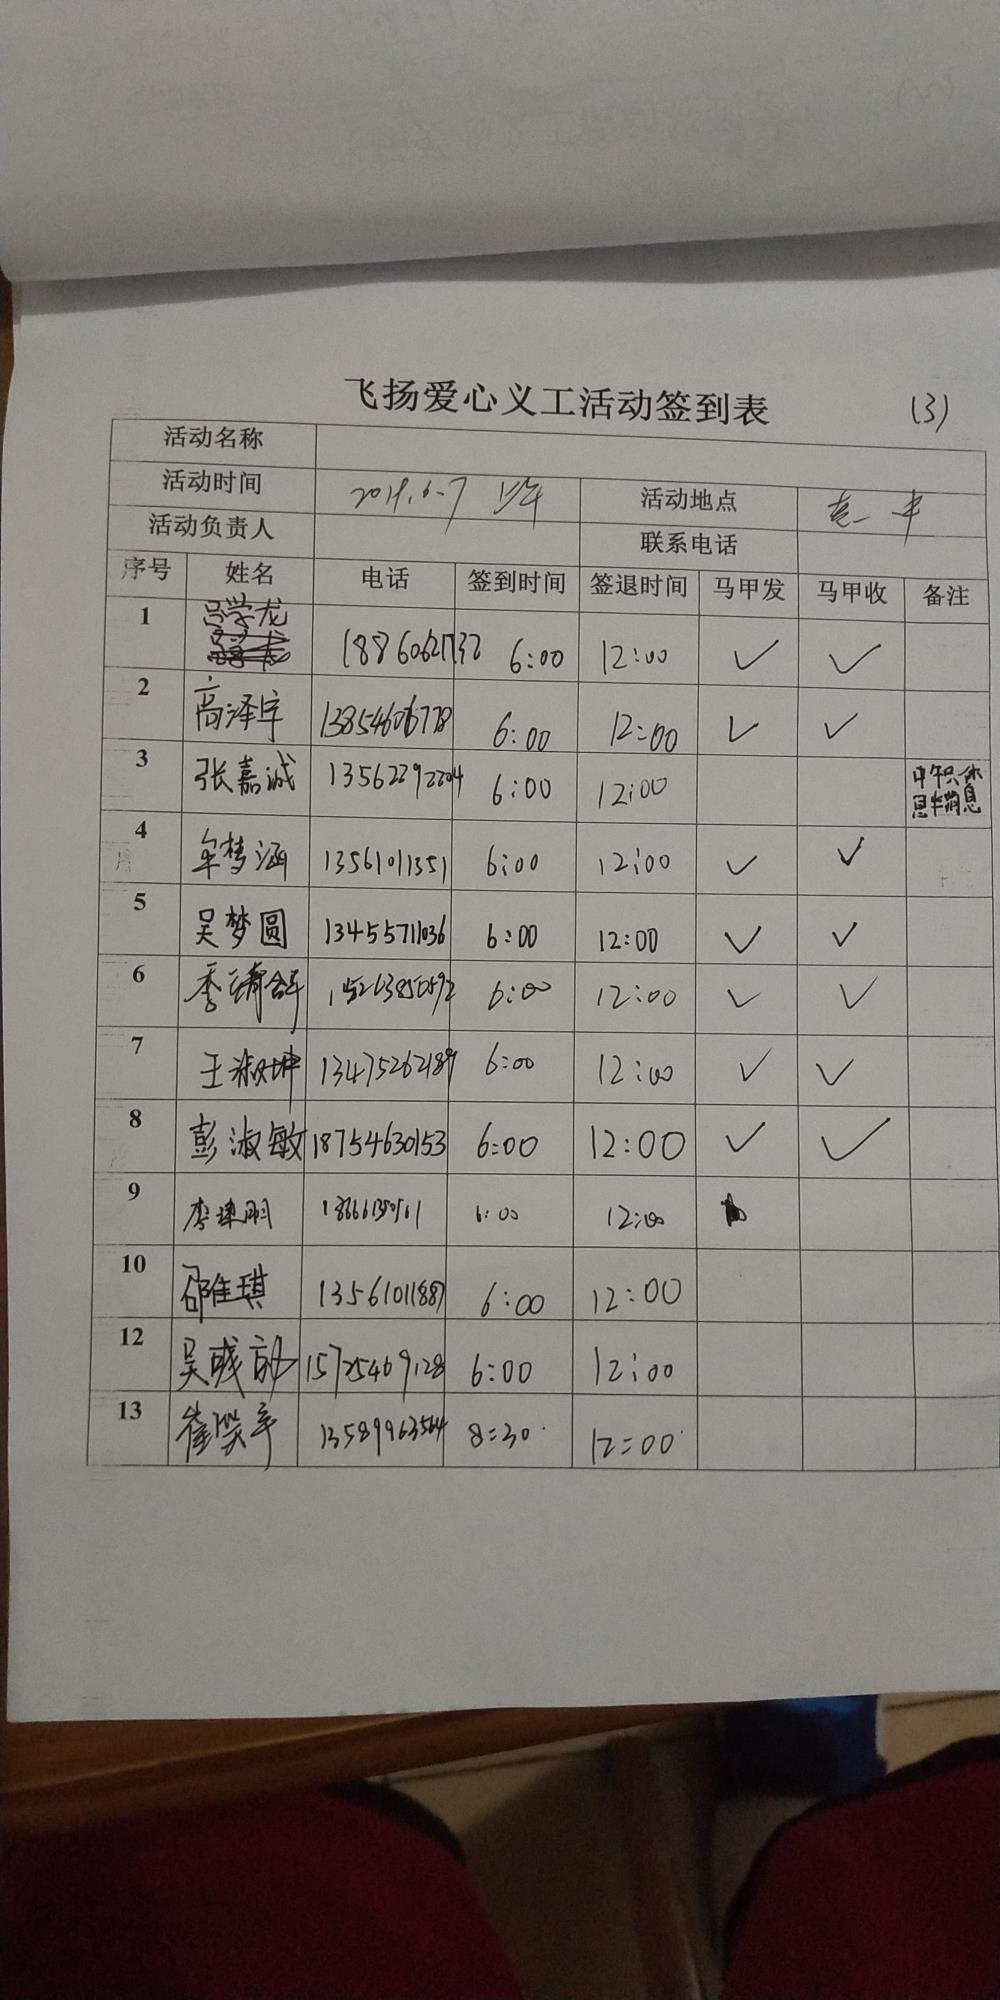 飞扬爱心义工活动签到表 (3)
活动名称
活动时间 2019.6.7 上午 活动地点
活动负责人 联系电话
序号 姓名 电话 签到时间 签退时间 马甲发 马甲收 备注
1 吕学龙 18860621732 6:00 12:00 ✓ ✓
2 高泽宇 13854606778 6:00 12:00 ✓ ✓
3 张嘉诚 13562292204 6:00 12:00 中午只休息半
4 牟梦涵 13561011351 6:00 12:00 ✓ ✓
5 吴梦圆 13455711036 6:00 12:00 ✓ ✓
6 季 15263850592 6:00 12:00 ✓ ✓
7 王淑坤 13475262189 6:00 12:00 ✓ ✓
8 彭淑敏 18754630153 6:00 12:00 ✓ ✓
9 李 6:00 12:00
10 邵佳琪 13561011887 6:00 12:00
12 吴 15725469128 6:00 12:00
13 崔 13589963564 8:30 12:00